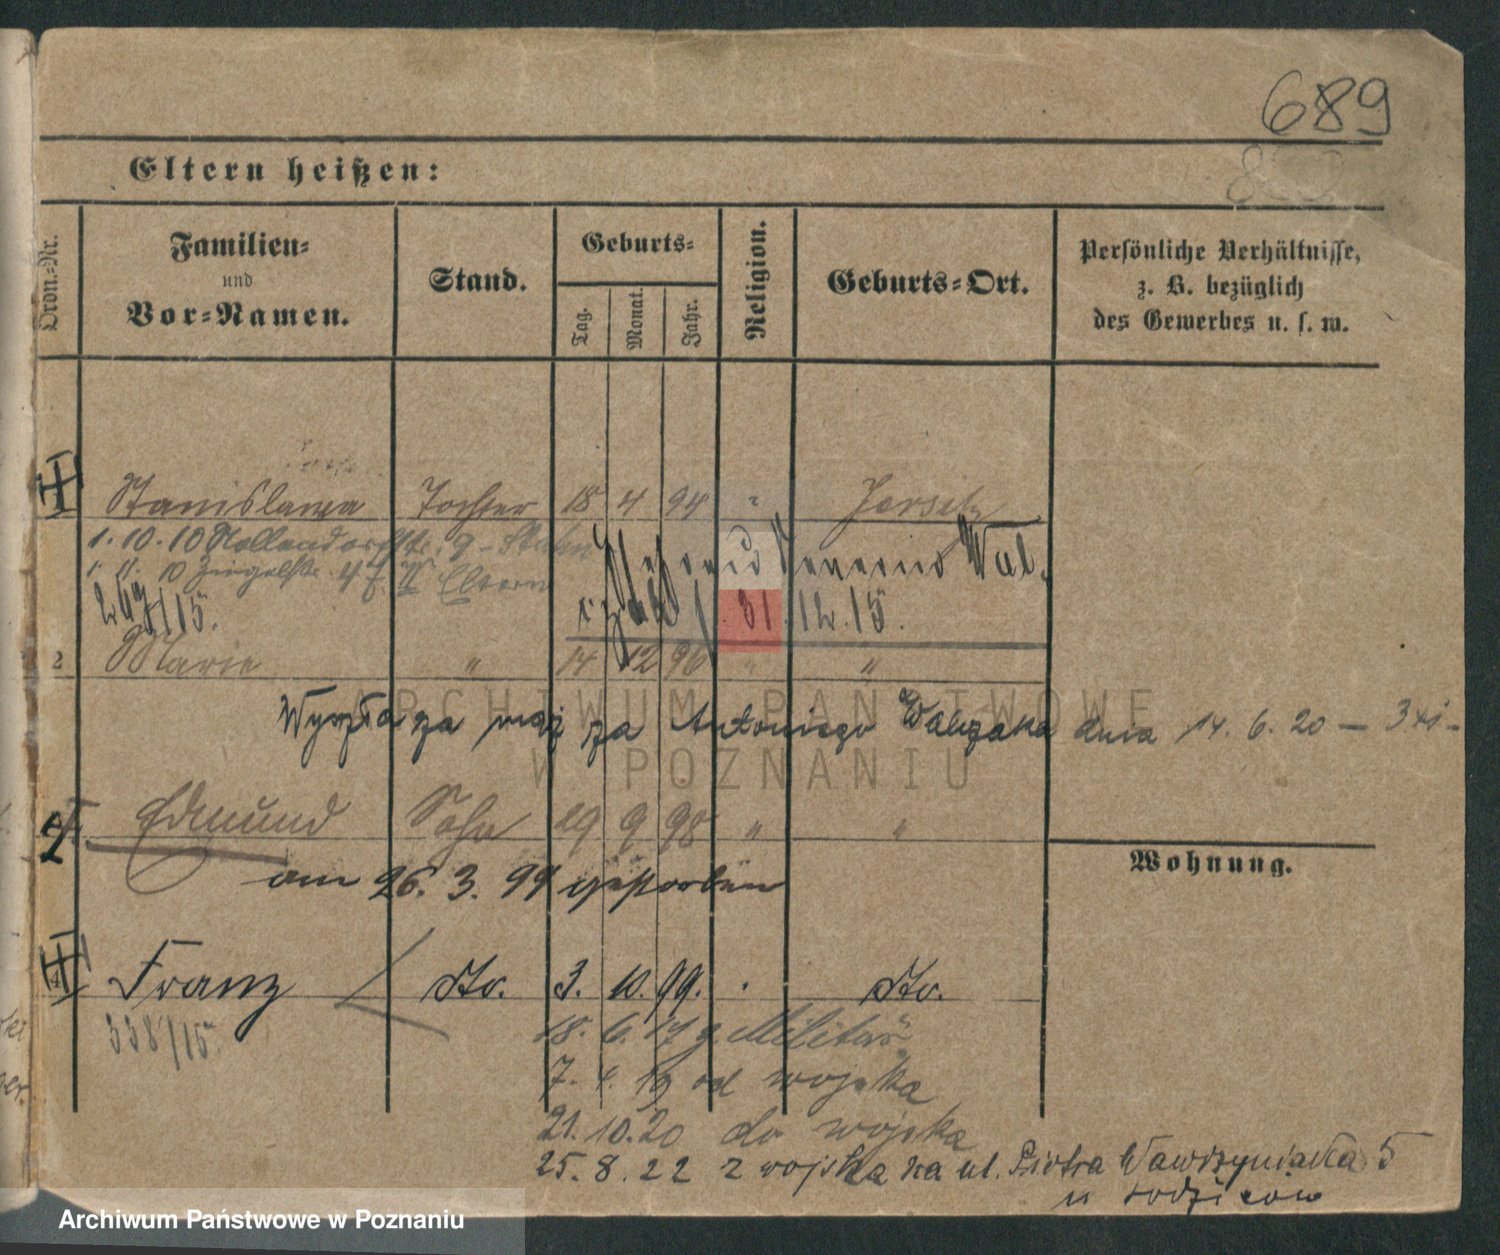 689
Eltern heißen:
Ordn.-Nr.
Familien-
und
Vor-Namen.
Stand.
Geburts-
Tag.
Monat.
Jahr.
Religion.
Geburts-Ort.
Persönliche Verhältnisse,
z. B. bezüglich
des Gewerbes u. s. w.
Stanislawa Tochter 18 4 94 " Jersitz
1. 10. 10 Hollendorfstr. 9
1. 11. 10 Ziegelstr. 4 II Eltern
269/15.
31.12.15.
2 Marie " 14 12 96 " "
Wyszła za mąż za Antoniego Walczaka dnia 14. 6. 20 —
Edmund Sohn 29 9 98 " "
am 26. 3. 99 gestorben
Wohnung.
4 Franz dto. 3. 10. 99. dto.
338/15.
18. 6. 17 z. Militär
7. 4. 19 od wojska
21. 10. 20 do wojska
25. 8. 22 z wojska na ul. Piotra Wawrzyniaka 5
u rodziców
ARCHIWUM PAŃSTWOWE
W POZNANIU
Archiwum Państwowe w Poznaniu